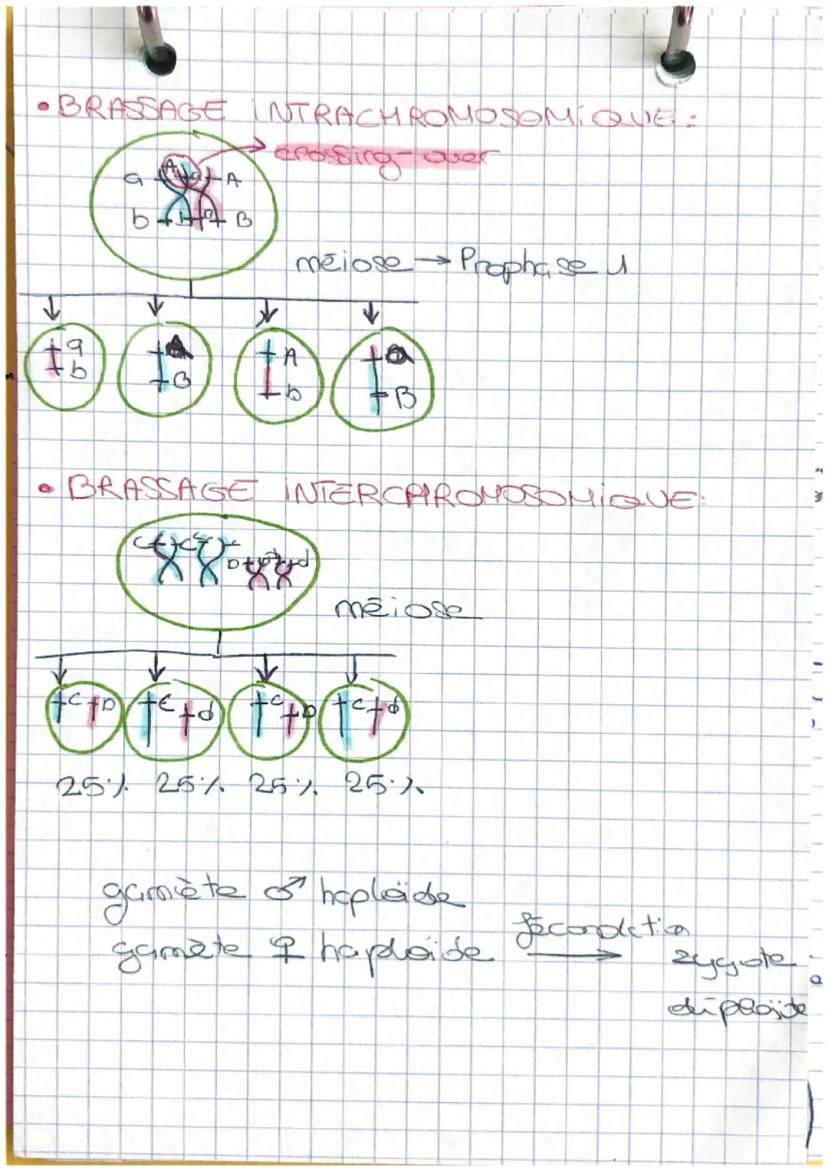 • BRASSAGE INTRACHROMOSOMIQUE:
crossing-over
a A a A
b b B B
méiose → Prophase 1
a A A a
b B b B
• BRASSAGE INTERCHROMOSOMIQUE:
C C c c
D D d d
méiose
C D C d c D c d
25% 25% 25% 25%
gamète ♂ haploïde
fécondation
gamète ♀ haploïde → zygote
diploïde